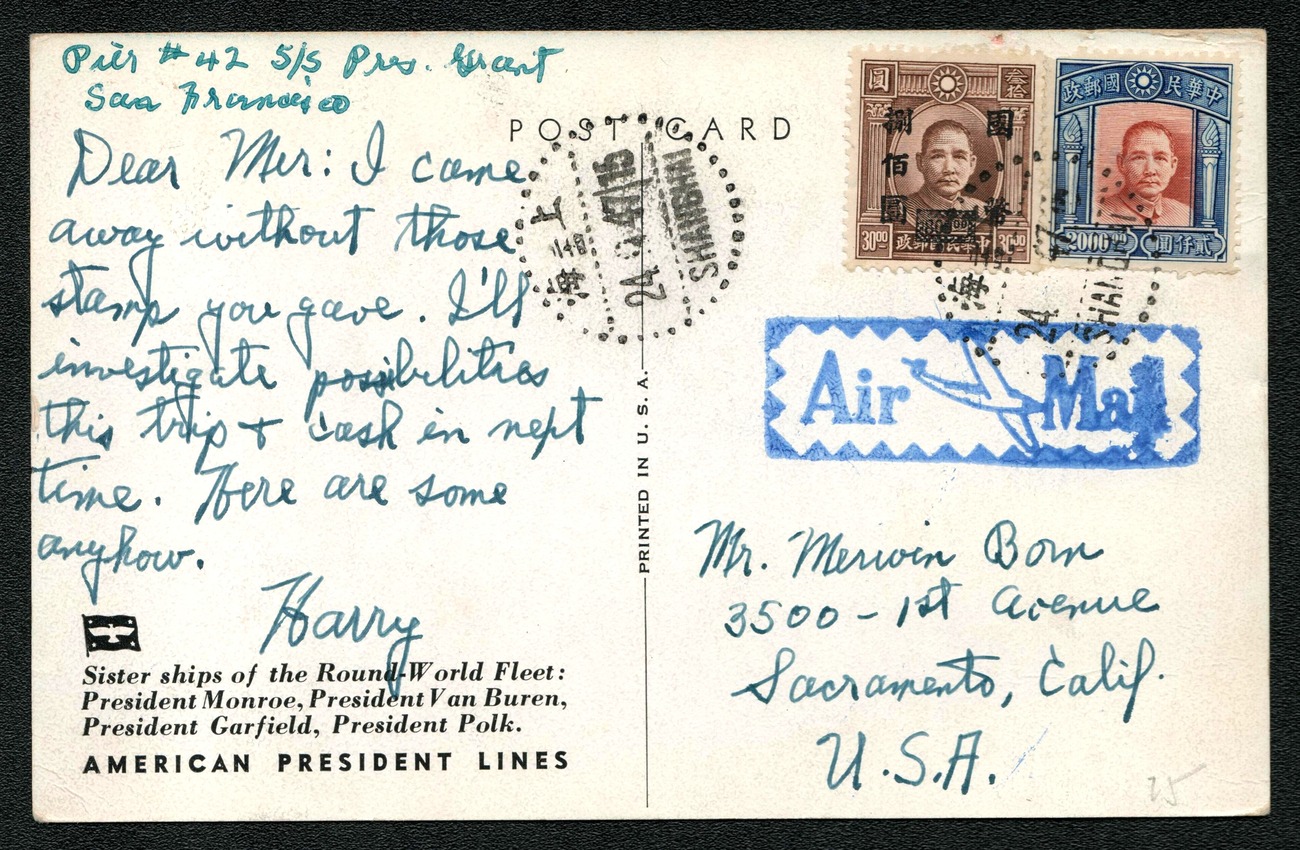 Pier #42 S/S Pres. Grant
San Francisco
POST CARD
Dear Mer: I came
away without those
stamp you gave. I'll
investigate possibilities
this trip & cash in nept
time. Here are some
anyhow.
Harry
Sister ships of the Round-World Fleet:
President Monroe, President Van Buren,
President Garfield, President Polk.
AMERICAN PRESIDENT LINES
PRINTED IN U. S. A.
上海
24
SHANGHAI
圓 叁拾
國幣
捌佰圓
30 00 政郵國民華中 30 00
政郵國 民華中
2000 圓仟貳
海
24
Air Mail
Mr. Merwin Born
3500 - 1st Avenue
Sacramento, Calif.
U.S.A.